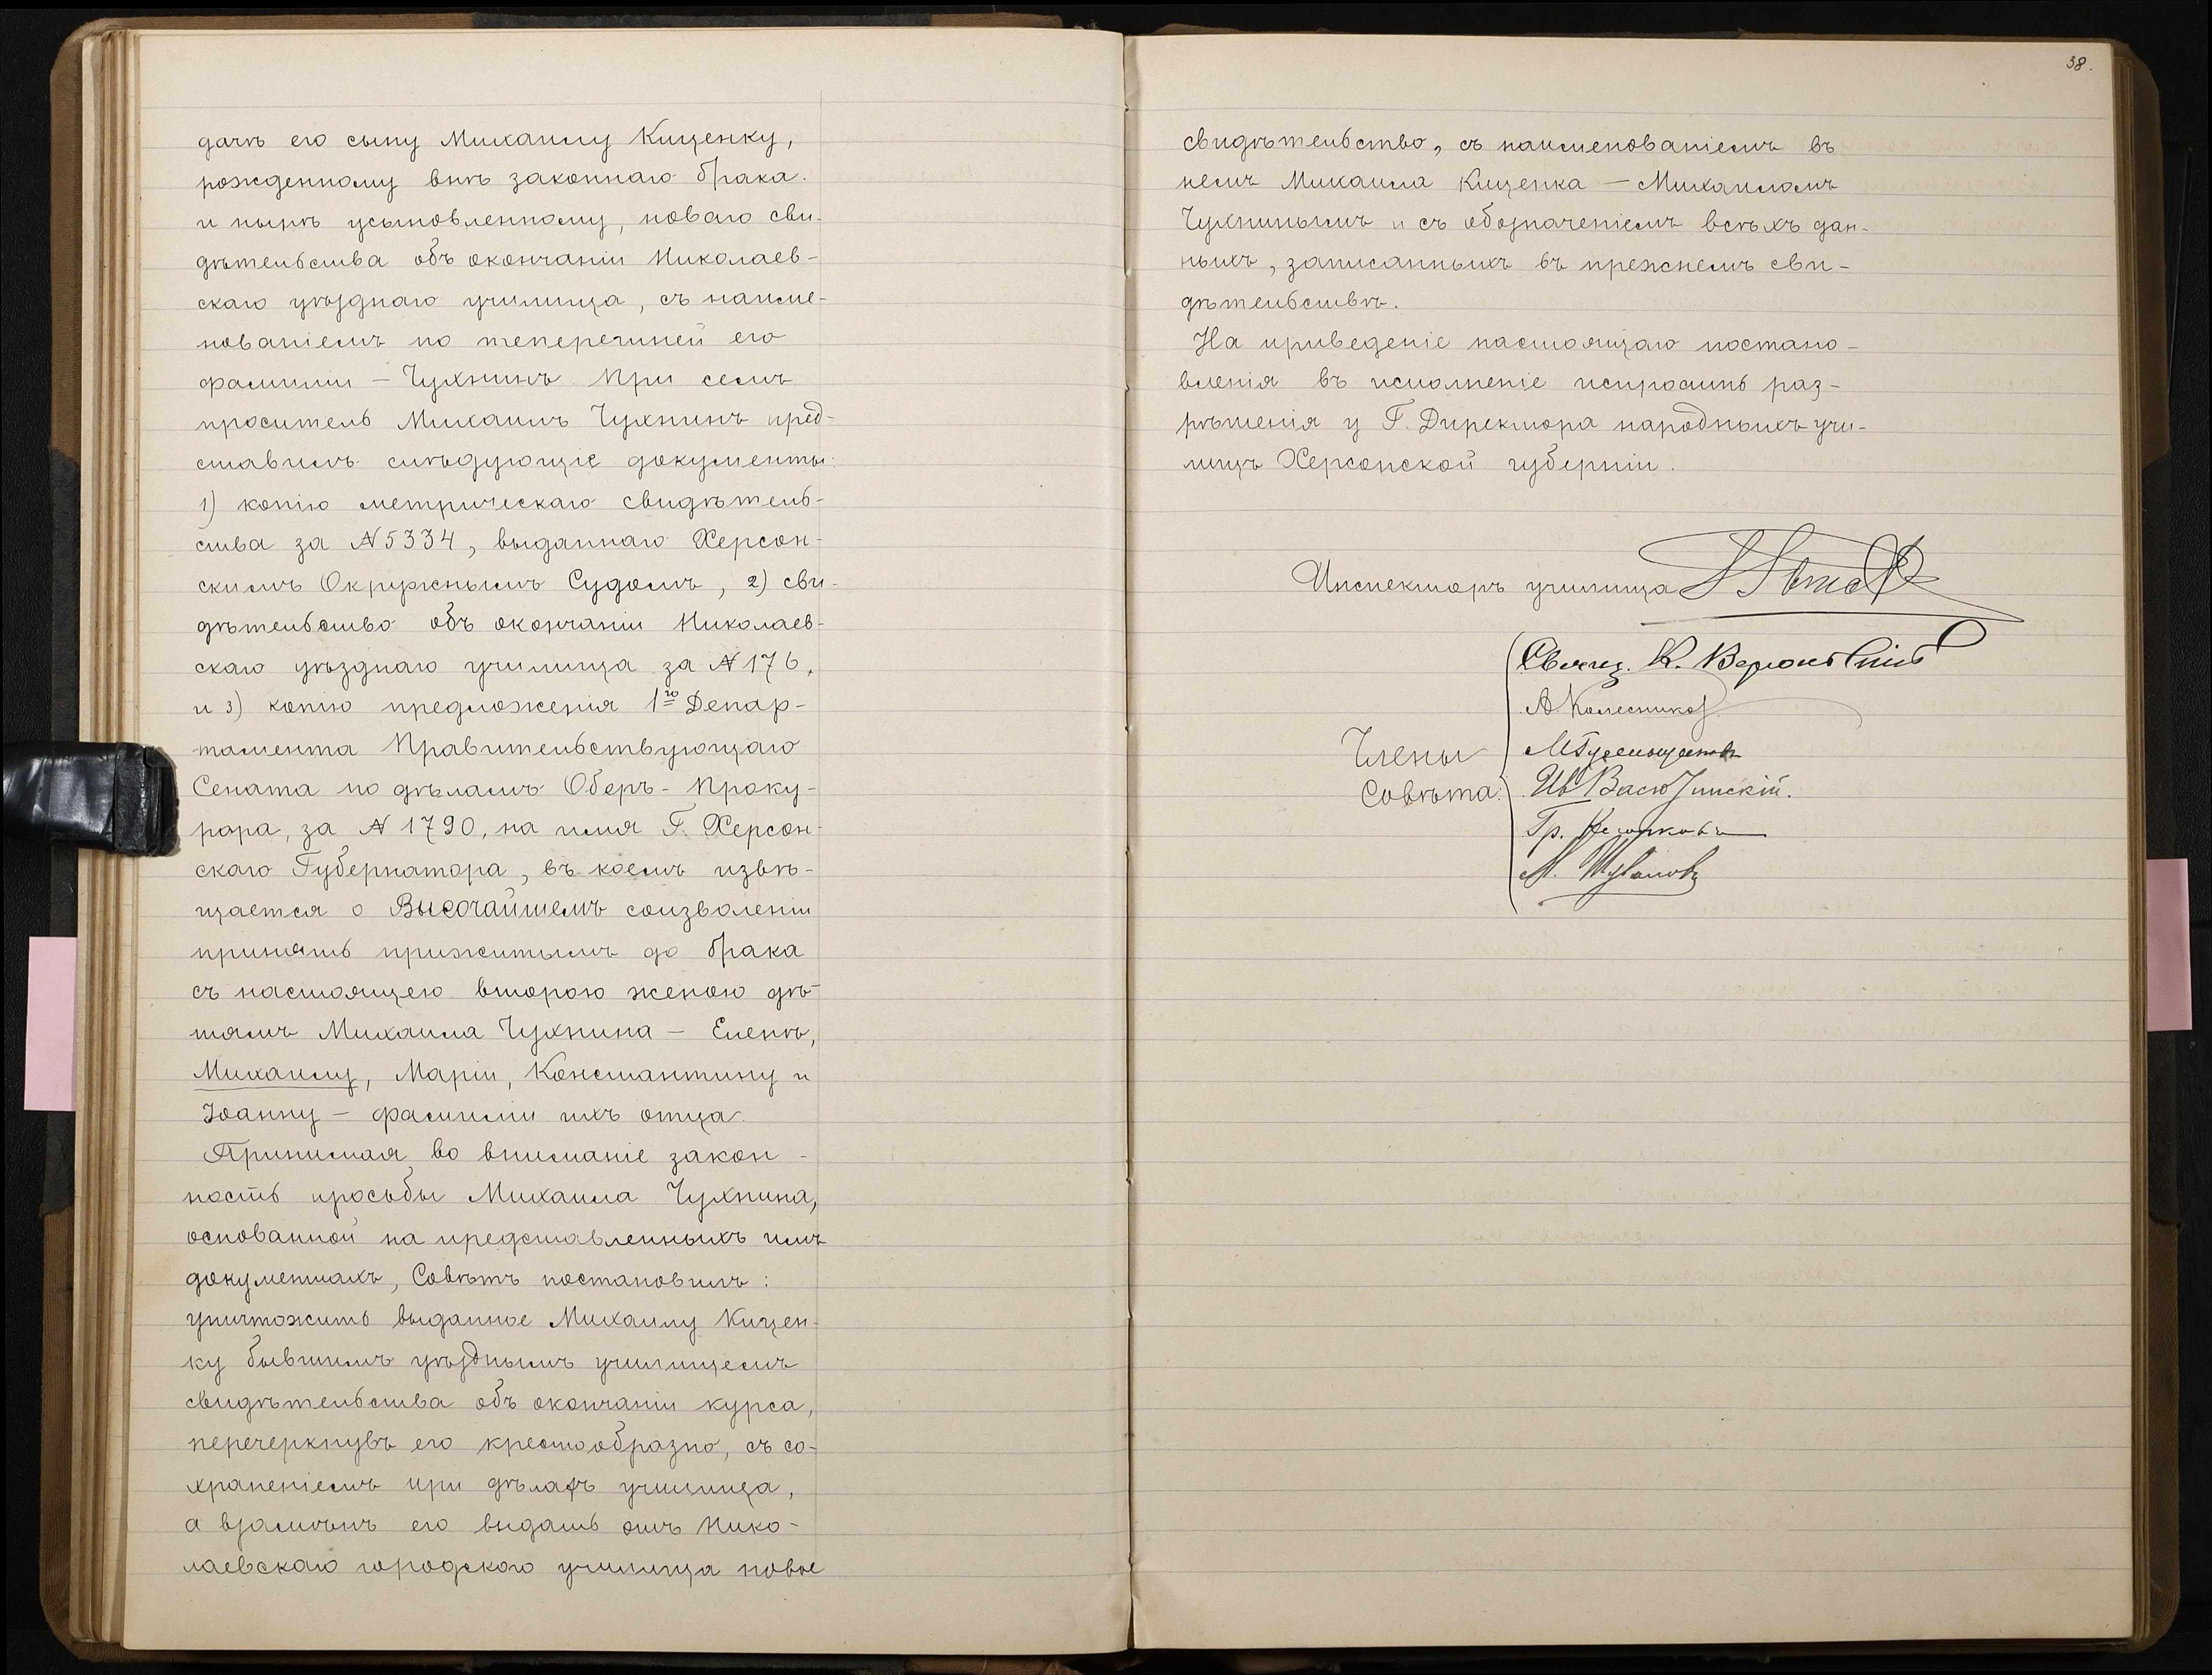 дачѣ его сыну Михаилу Киценку,
рожденному внѣ законнаго брака.
и нынѣ усыновленному, новаго сви-
дѣтельства объ окончаніи Николаев-
скаго уѣзднаго училища, съ наиме-
нованіемъ по теперешней его
фамиліи — Чухнинъ. При семъ
проситель Михаилъ Чухнинъ пред-
ставилъ слѣдующіе документы:
1) копію метрическаго свидѣтель-
ства за № 5334, выданнаго Херсон-
скимъ Окружнымъ Судомъ, 2) сви-
дѣтельство объ окончаніи Николаев-
скаго уѣзднаго училища за № 176,
и 3) копію предложенія 1го Депар-
тамента Правительствующаго
Сената по дѣламъ Оберъ-Проку-
рора, за № 1790, на имя Г. Херсон-
скаго Губернатора, въ коемъ извѣ-
щается о Высочайшемъ соизволеніи
принять прижитымъ до брака
съ настоящею второю женою дѣ-
тямъ Михаила Чухнина — Еленѣ,
Михаилу, Маріи, Константину и
Іоанну — фамиліи ихъ отца.
Принимая во вниманіе закон-
ность просьбы Михаила Чухнина,
основанной на представленныхъ имъ
документахъ, Совѣтъ постановилъ:
уничтожить выданное Михаилу Кицен-
ку бывшимъ уѣзднымъ училищемъ
свидѣтельства объ окончаніи курса,
перечеркнувъ его крестообразно, съ со-
храненіемъ при дѣлахъ училища,
а взамѣнъ его выдать отъ Нико-
лаевскаго городского училища новое
38.
свидѣтельство, съ наименованіемъ въ
немъ Михаила Киценка — Михаиломъ
Чухнинымъ и съ обозначеніемъ всѣхъ дан-
ныхъ, записанныхъ въ прежнемъ сви-
дѣтельствѣ.
На приведеніе настоящаго постано-
вленія въ исполненіе испросить раз-
рѣшенія у Г. Директора народныхъ учи-
лищъ Херсонской губерніи.
Инспекторъ училища
Свящ. К.
А. Колесников
Члены
Совѣта:
Ив
Гр.
М.